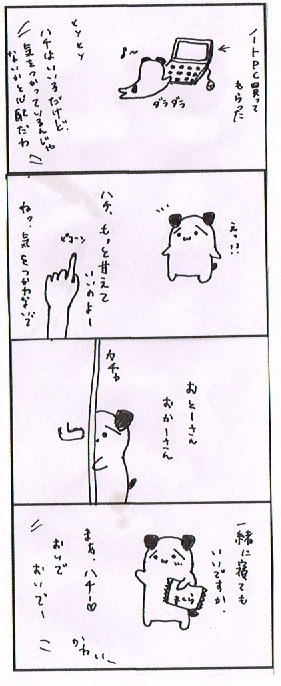 ノートPC買って
もらった
♪〜
ダラダラ
ヒソヒソ
ハチはいい子だけど、
気をつかっているんじゃ
ないかと心配だわ
えっ!?
ハチ、もっと甘えて
いいのよー
ピコーン
ね?気をつかわないで
おとーさん
おかーさん
カチャ
一緒に寝ても
いいですか、
まくら
まぁ、ハチー♡
おいで
おいでー
かわいー